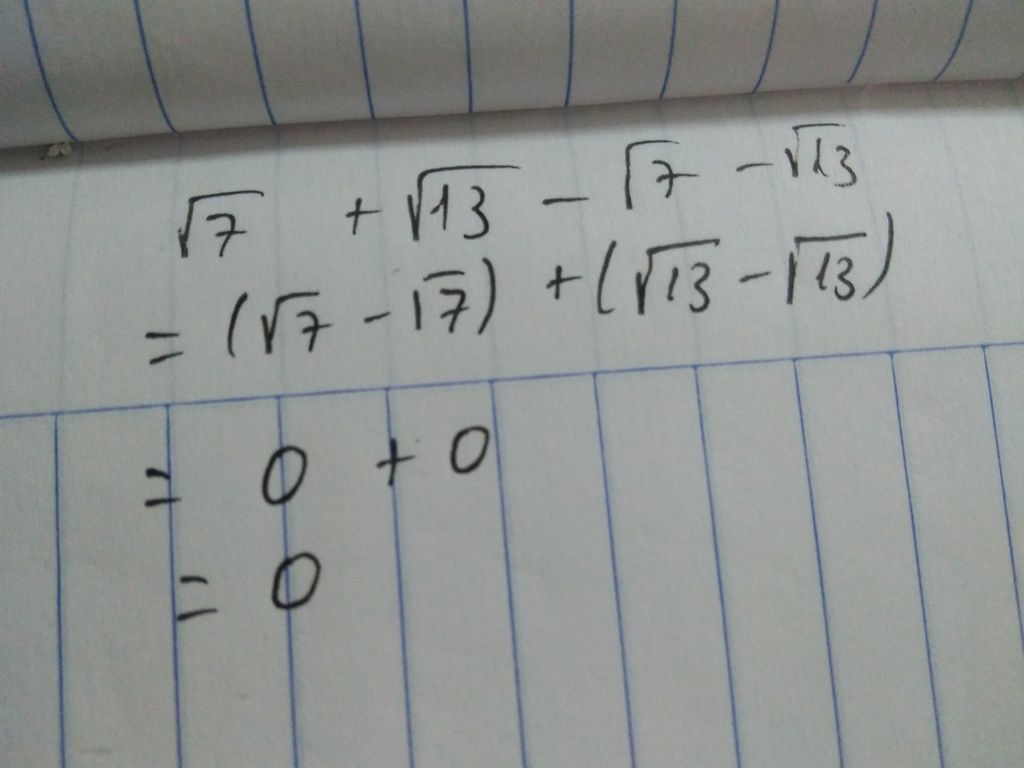 √7 + √13 - √7 - √13
= (√7 - √7) + (√13 - √13)
= 0 + 0
= 0